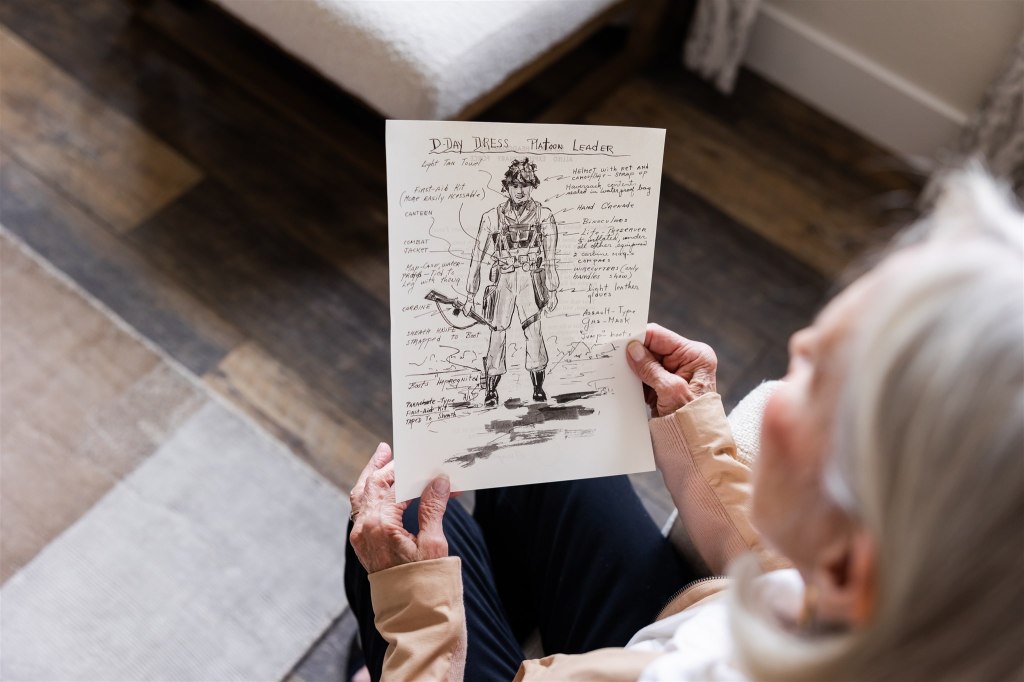 D-DAY DRESS PLATOON LEADER
Light Tan Towel
First-Aid Kit
(More Easily Accessable)
CANTEEN
COMBAT
JACKET
Map-Case, water-
proof - Tied to
Leg with thong
CORBINE
SHEATH KNIFE
STRAPPED TO Boot
Boots Impregnated
Parachute-Type
First-Aid Kit
TAPED To Sheath
HELMET with net and
camouflage - strap up
Haversack content
sealed in waterproof bag
Hand Grenade
Binoculars
Life-Preserver
inflated, under
all other equipment
2 carbine mags
compass
WIRECUTTERS (only
handles show)
Light leather
gloves
Assault-Type
Gas-Mask
"Jump" boots